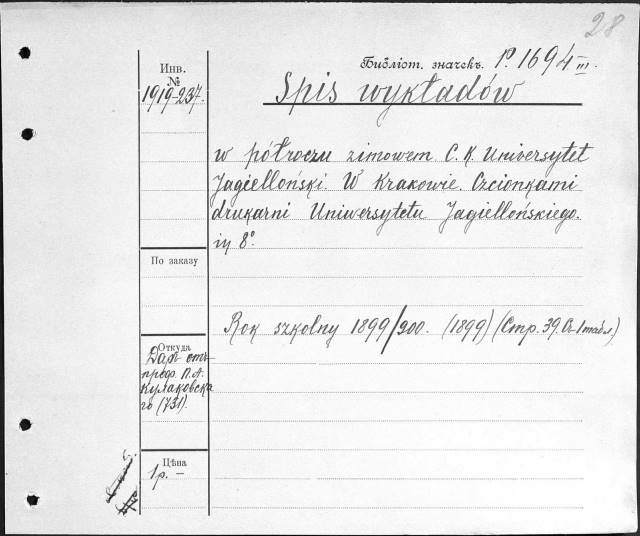 28
Библіот. значекъ. P. 1694 III.
Инв.
№
1919-237.
Spis wykładów
w półroczu zimowem. C. K. Uniwersytet
Jagielloński. W Krakowie. Czcionkami
drukarni Uniwersytetu Jagiellońskiego.
in 8º.
По заказу
Rok szkolny 1899/900. (1899) (Стр. 39. Съ 1 табл.)
Откуда
Даръ отъ
проф. П. А.
Кулаковска
го (731).
Цѣна
1 р. –